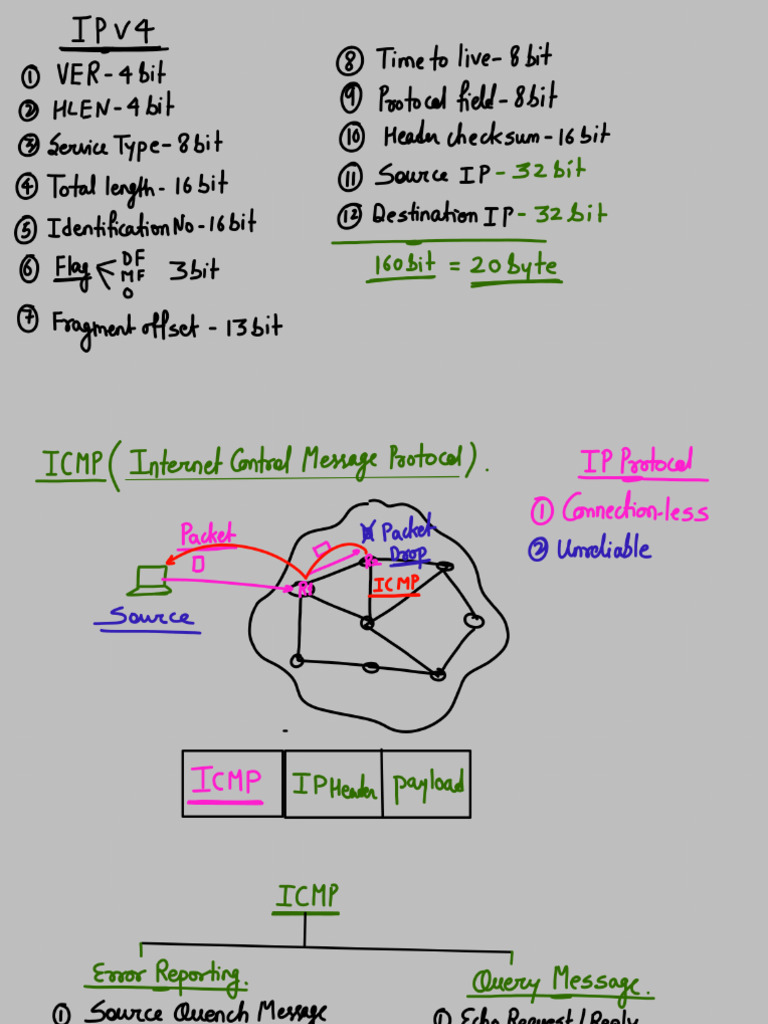 IPv4
① VER - 4 bit
② HLEN - 4 bit
③ Service Type - 8 bit
④ Total length - 16 bit
⑤ Identification No - 16 bit
⑥ Flag DF MF 0 3 bit
⑦ Fragment offset - 13 bit
⑧ Time to live - 8 bit
⑨ Protocol field - 8 bit
⑩ Header checksum - 16 bit
⑪ Source IP - 32 bit
⑫ Destination IP - 32 bit
160 bit = 20 byte
ICMP (Internet Control Message Protocol).
IP Protocol
① Connection-less
② Unreliable
Packet
Packet
Drop
R1
ICMP
Source
ICMP
IP Header
Payload
ICMP
Error Reporting.
Query Message.
① Source Quench Message
① Echo Request / Reply